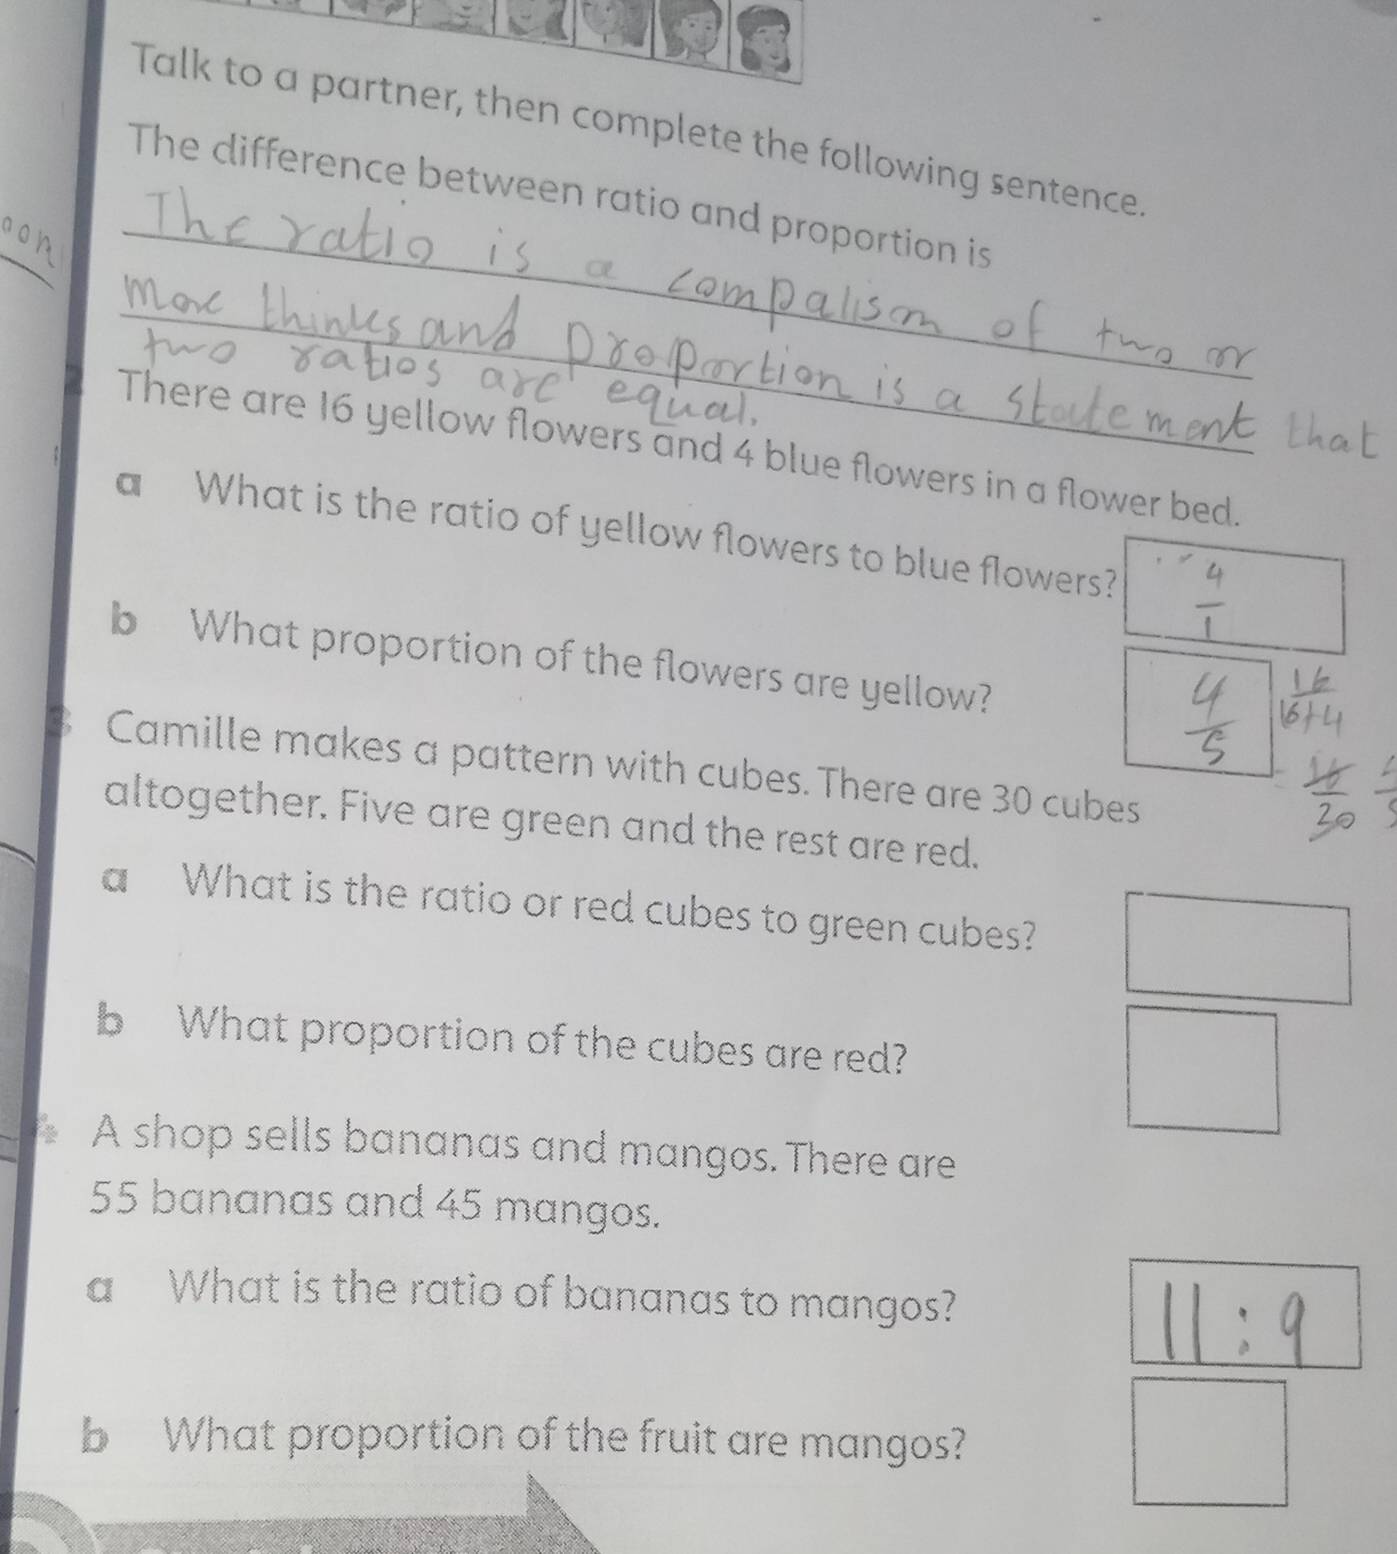 Talk to a partner, then complete the following sentence.
The difference between ratio and proportion is
The ratio is a compalism of two or
more thinks and proportion is a statement that
two ratios are equal.
oon
2 There are 16 yellow flowers and 4 blue flowers in a flower bed.
a What is the ratio of yellow flowers to blue flowers?
4/1
b What proportion of the flowers are yellow?
4/5
16/16+4
= 16/20
3 Camille makes a pattern with cubes. There are 30 cubes
altogether. Five are green and the rest are red.
a What is the ratio or red cubes to green cubes?
b What proportion of the cubes are red?
4 A shop sells bananas and mangos. There are
55 bananas and 45 mangos.
a What is the ratio of bananas to mangos?
11:9
b What proportion of the fruit are mangos?